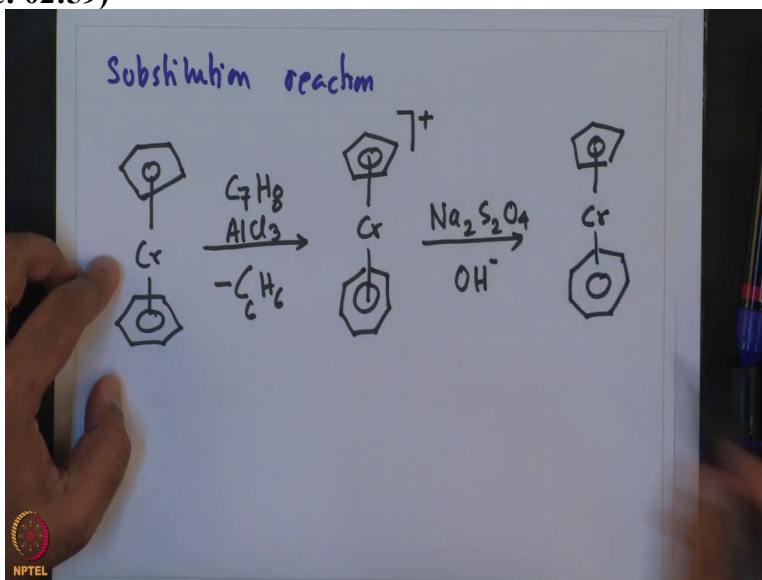 : 02:59)
Substitution reaction
C7H8
AlCl3
-C6H6
Cr
]+
Cr
Na2S2O4
OH-
Cr
NPTEL